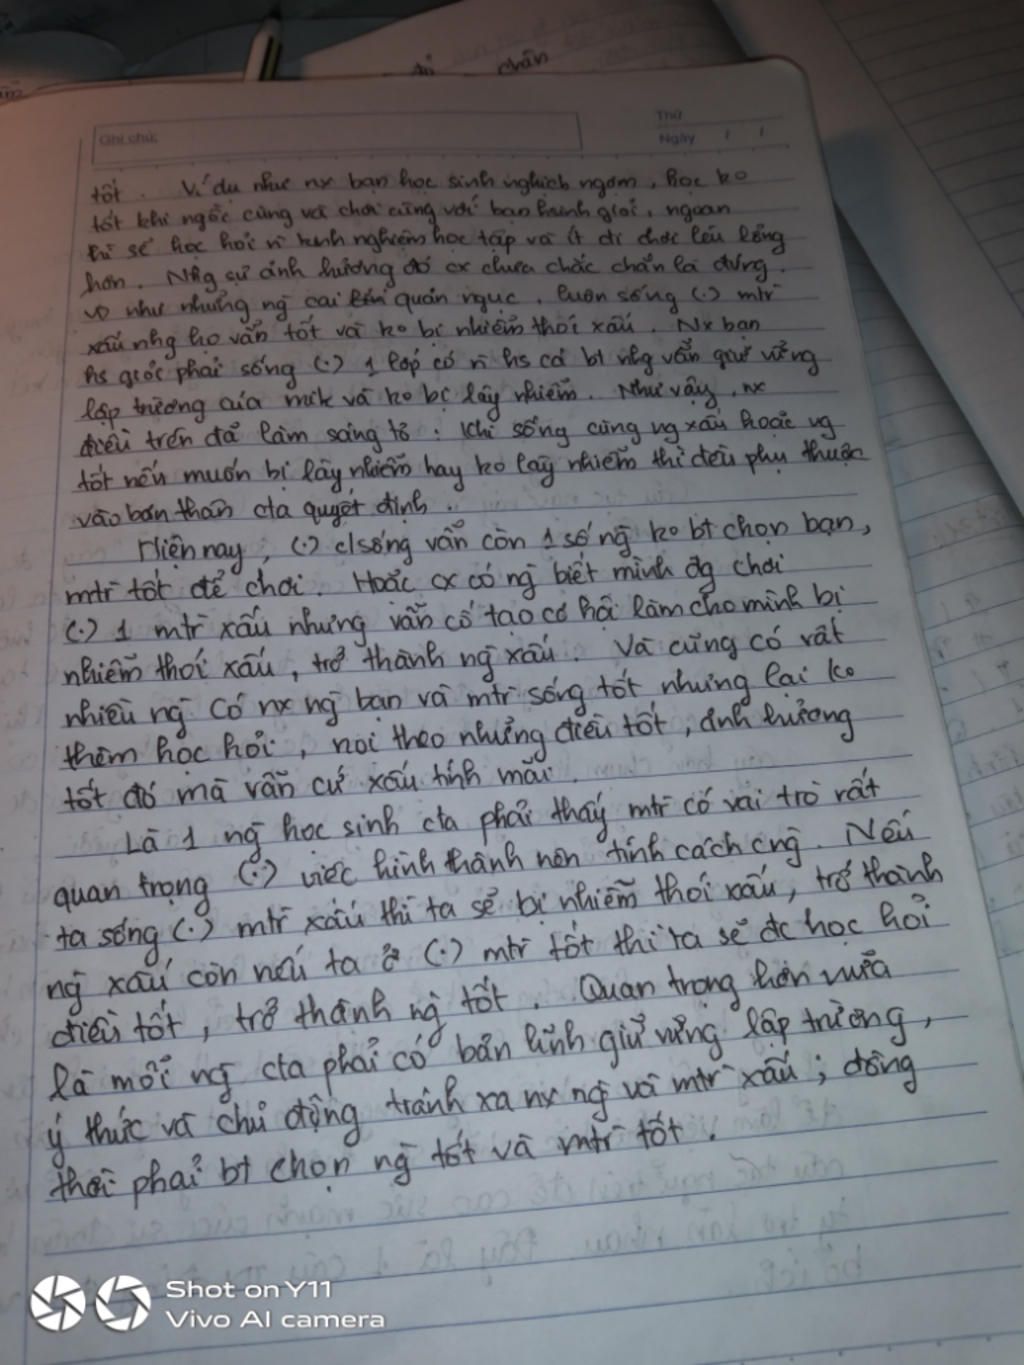 chân
Ghi chú:
Thứ
Ngày / /
tốt. Ví dụ như nx bạn học sinh nghịch ngợm, học ko
tốt khi ngồi cùng và chơi cùng với bạn hsinh giỏi, ngoan
thì sẽ học hỏi n kinh nghiệm học tập và ít đi chơi lêu lổng
hơn. Nhg sự ảnh hưởng đó cx chưa chắc chắn là đúng.
VD như những ng cai quản ngục, luôn sống (.) mtr
xấu nhg họ vẫn tốt và ko bị nhiễm thói xấu. Nx bạn
hs giỏi phải sống (.) 1 lớp có n hs cá bt nhg vẫn giữ vững
lập trường của mik và ko bị lây nhiễm. Như vậy, nx
điều trên đã làm sáng tỏ: Khi sống cùng ng xấu hoặc ng
tốt nếu muốn bị lây nhiễm hay ko lây nhiễm thì đều phụ thuộc
vào bản thân cta quyết định.
Hiện nay, (.) c/sống vẫn còn 1 số ng ko bt chọn bạn,
mtr tốt để chơi. Hoặc cx có ng biết mình đg chơi
(.) 1 mtr xấu nhưng vẫn cố tạo cơ hội làm cho mình bị
nhiễm thói xấu, trở thành ng xấu. Và cũng có rất
nhiều ng có nx ng bạn và mtr sống tốt nhưng lại ko
thèm học hỏi, noi theo những điều tốt, ảnh hưởng
tốt đó mà vẫn cứ xấu tính mãi.
Là 1 ng học sinh cta phải thấy mtr có vai trò rất
quan trọng (.) việc hình thành nên tính cách cng. Nếu
ta sống (.) mtr xấu thì ta sẽ bị nhiễm thói xấu, trở thành
ng xấu còn nếu ta ở (.) mtr tốt thì ta sẽ đc học hỏi
điều tốt, trở thành ng tốt. Quan trọng hơn nữa
là mỗi ng cta phải có bản lĩnh giữ vững lập trường,
ý thức và chủ động tránh xa nx ng và mtr xấu; đồng
thời phải bt chọn ng tốt và mtr tốt.
Shot on Y11
Vivo AI camera